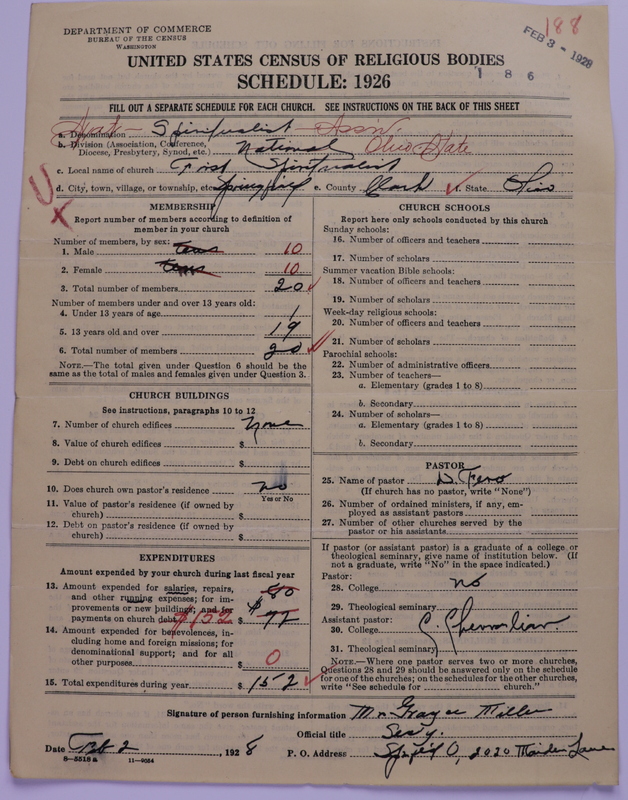 188
FEB 3 - 1928
DEPARTMENT OF COMMERCE
BUREAU OF THE CENSUS
WASHINGTON
UNITED STATES CENSUS OF RELIGIOUS BODIES
SCHEDULE: 1926
1 8 6
FILL OUT A SEPARATE SCHEDULE FOR EACH CHURCH. SEE INSTRUCTIONS ON THE BACK OF THIS SHEET
a. Denomination Nat- Spiritualist - Ass'n.
b. Division (Association, Conference, Diocese, Presbytery, Synod, etc.) National Ohio State
c. Local name of church First Spiritualist
d. City, town, village, or township, etc. Springfield e. County Clark f. State Ohio
MEMBERSHIP
Report number of members according to definition of
member in your church
Number of members, by sex:
1. Male 10
2. Female 10
3. Total number of members 20
Number of members under and over 13 years old:
4. Under 13 years of age 1
5. 13 years old and over 19
6. Total number of members 20
NOTE.—The total given under Question 6 should be
same as the total of males and females given under Question 3.
CHURCH BUILDINGS
See instructions, paragraphs 10 to 12
7. Number of church edifices None
8. Value of church edifices $
9. Debt on church edifices $
10. Does church own pastor's residence No
Yes or No
11. Value of pastor's residence (if owned by
church) $
12. Debt on pastor's residence (if owned by
church) $
EXPENDITURES
Amount expended by your church during last fiscal year
13. Amount expended for salaries, repairs, 80
and other running expenses; for im-
provements or new buildings; and for $
payments on church debt $152 72
14. Amount expended for benevolences, in-
cluding home and foreign missions; for
denominational support; and for all
other purposes $ 0
15. Total expenditures during year $ 152
CHURCH SCHOOLS
Report here only schools conducted by this church
Sunday schools:
16. Number of officers and teachers
17. Number of scholars
Summer vacation Bible schools:
18. Number of officers and teachers
19. Number of scholars
Week-day religious schools:
20. Number of officers and teachers
21. Number of scholars
Parochial schools:
22. Number of administrative officers
23. Number of teachers—
a. Elementary (grades 1 to 8)
b. Secondary
24. Number of scholars—
a. Elementary (grades 1 to 8)
b. Secondary
PASTOR
25. Name of pastor D. Fero
(If church has no pastor, write "None")
26. Number of ordained ministers, if any, em-
ployed as assistant pastors
27. Number of other churches served by the
pastor or his assistants
If pastor (or assistant pastor) is a graduate of a college or
theological seminary, give name of institution below. (If
not a graduate, write "No" in the space indicated.)
Pastor:
28. College no
29. Theological seminary
Assistant pastor:
30. College
31. Theological seminary
NOTE.—Where one pastor serves two or more churches,
Questions 28 and 29 should be answered only on the schedule
for one of the churches; on the schedules for the other churches,
write "See schedule for church."
Signature of person furnishing information Mr Grayce Miller
Official title Secy.
Date Feb 2, 1928 P. O. Address Springfield O, 2020 Maiden Lane
8-5518 a 11-9054